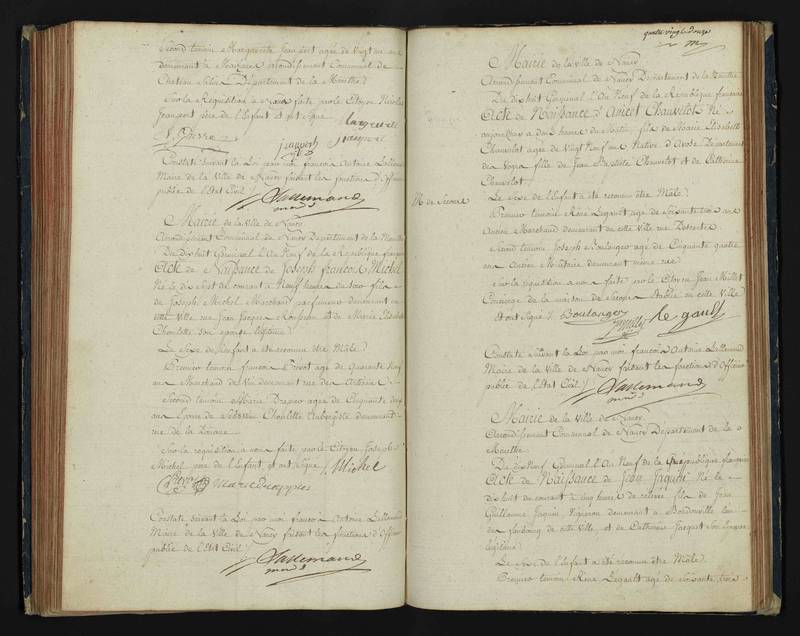 Second temoin Marguerite Jeanpert agée de Vingt un ans
demeurant à arrondissement Communal de
Chateau Salin Département de la Meurthe /.
Sur la Requisition à nous faite par le Citoyen Nicolas
Jeanpert père de l'Enfant et ont signé
Constaté suivant la Loi par moi françois Antoine Lallemand
Maire de la Ville de Nancy faisant les fonctions d'Officier
public de l'Etat Civil /.
Lallemand
Mairie de la Ville de Nancy
Arrondissement Communal de Nancy Département de la Meurthe
Du dix huit Germinal l'An Neuf de la République française
Acte de Naissance de Joseph françois Michel
Né le dix sept du courant à Neuf heures du soir fils
de Joseph Michel Marchand parfumeur demeurant en
cette Ville rue Jean Jacques Rousseau et de Marie Elisabeth
Choulette son epouse légitime /.
Le Sexe de l'enfant a été reconnu être Male /.
Premier temoin françois Prevot agé de Quarante Neuf
ans Marchand de Vin demeurant rue des Artisans
Second temoin Marie Drapier agée de Cinquante
ans Epouse de Choulette Aubergiste demeurant
rue de la Douane
Sur la requisition a nous faite par le Citoyen Joseph
Michel père de l'Enfant, et ont signé /. Michel
Prevot Marie
Constaté suivant la Loi par moi françois Antoine Lallemand
Maire de la Ville de Nancy faisant les fonctions d'Officier
public de l'Etat Civil /.
Lallemand
quatre vingt douze
Mairie de la Ville de Nancy
Arrondissement Communal de Nancy Département de la Meurthe
Du dix huit Germinal l'An Neuf de la République française
Acte de Naissance d'Anicet Chauvelot Né
aujourdhuy à deux heures du matin, fils de Marie Elisabeth
Chauvelot agée de Vingt Neuf ans Native d' Departement
des Vosges fille de Jean Baptiste Chauvelot et de Catherine
Chauvelot /.
M. de Secours
Le Sexe de l'Enfant a été reconnu être Male /.
Premier temoin Réné Legault agé de Soixante trois ans
Ancien Marchand demeurant en cette Ville rue Descartes
Second temoin Joseph Boulanger agé de Cinquante quatre
ans Ancien Militaire demeurant même rue
Sur la requisition a nous faite par le Citoyen Jean Millet
Concierge de la maison de Secours établie en cette Ville
et ont signé /. Boulanger
Millet le gault
Constaté suivant la Loi par moi françois Antoine Lallemand
Maire de la Ville de Nancy faisant les fonctions d'Officier
public de l'Etat Civil /.
Lallemand
Mairie de la Ville de Nancy
Arrondissement Communal de Nancy Département de la
Meurthe
Du dix Neuf Germinal l'An Neuf de la République française
Acte de Naissance de Jean Jaquin Né le
dix huit du courant à cinq heures de relevée fils de Jean
Guillaume Jaquin Vigneron demeurant à Boudonville
faubourg de cette Ville, et de Catherine Jacquet son Epouse
légitime /.
Le Sexe de l'Enfant a été reconnu être Male /.
Premier temoin Réné Legault agé de Soixante trois